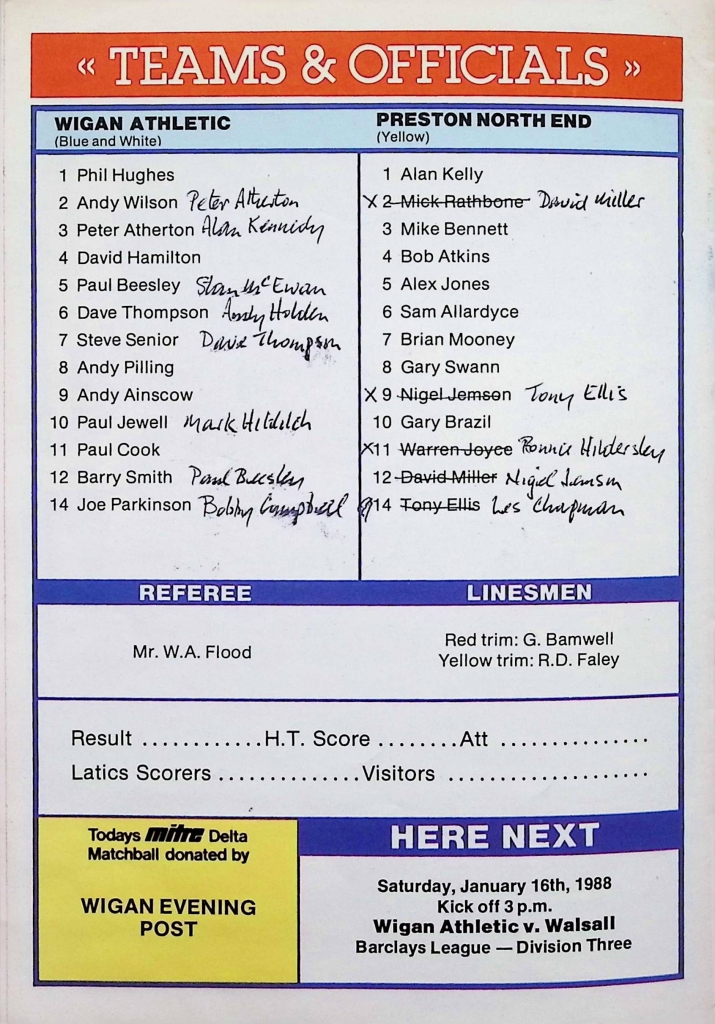 « TEAMS & OFFICIALS »
WIGAN ATHLETIC
(Blue and White)
1 Phil Hughes
2 Andy Wilson Peter Atherton
3 Peter Atherton Alan Kennedy
4 David Hamilton
5 Paul Beesley Stan McEwan
6 Dave Thompson Andy Holden
7 Steve Senior David Thompson
8 Andy Pilling
9 Andy Ainscow
10 Paul Jewell Mark Hilditch
11 Paul Cook
12 Barry Smith Paul Beesley
14 Joe Parkinson Bobby Campbell
PRESTON NORTH END
(Yellow)
1 Alan Kelly
X 2 Mick Rathbone David Miller
3 Mike Bennett
4 Bob Atkins
5 Alex Jones
6 Sam Allardyce
7 Brian Mooney
8 Gary Swann
X 9 Nigel Jemson Tony Ellis
10 Gary Brazil
X 11 Warren Joyce Ronnie Hildersley
12 David Miller Nigel Jemson
14 Tony Ellis Les Chapman
REFEREE
Mr. W.A. Flood
LINESMEN
Red trim: G. Bamwell
Yellow trim: R.D. Faley
Result ............H.T. Score ........Att ...............
Latics Scorers ..............Visitors ....................
Todays mitre Delta
Matchball donated by
WIGAN EVENING
POST
HERE NEXT
Saturday, January 16th, 1988
Kick off 3 p.m.
Wigan Athletic v. Walsall
Barclays League — Division Three